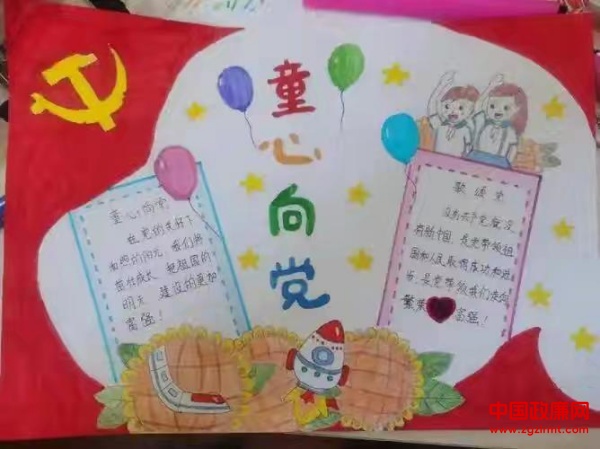 童心向党
童心向党
在党的
的阳光,我们将
茁壮成长 把祖国的
明天 建设的更加
富强!
歌颂党
没有共产党就没
有新中国,是党带领祖
国和人民取得成功和进
步,是党带领我们走向
繁荣 富强!